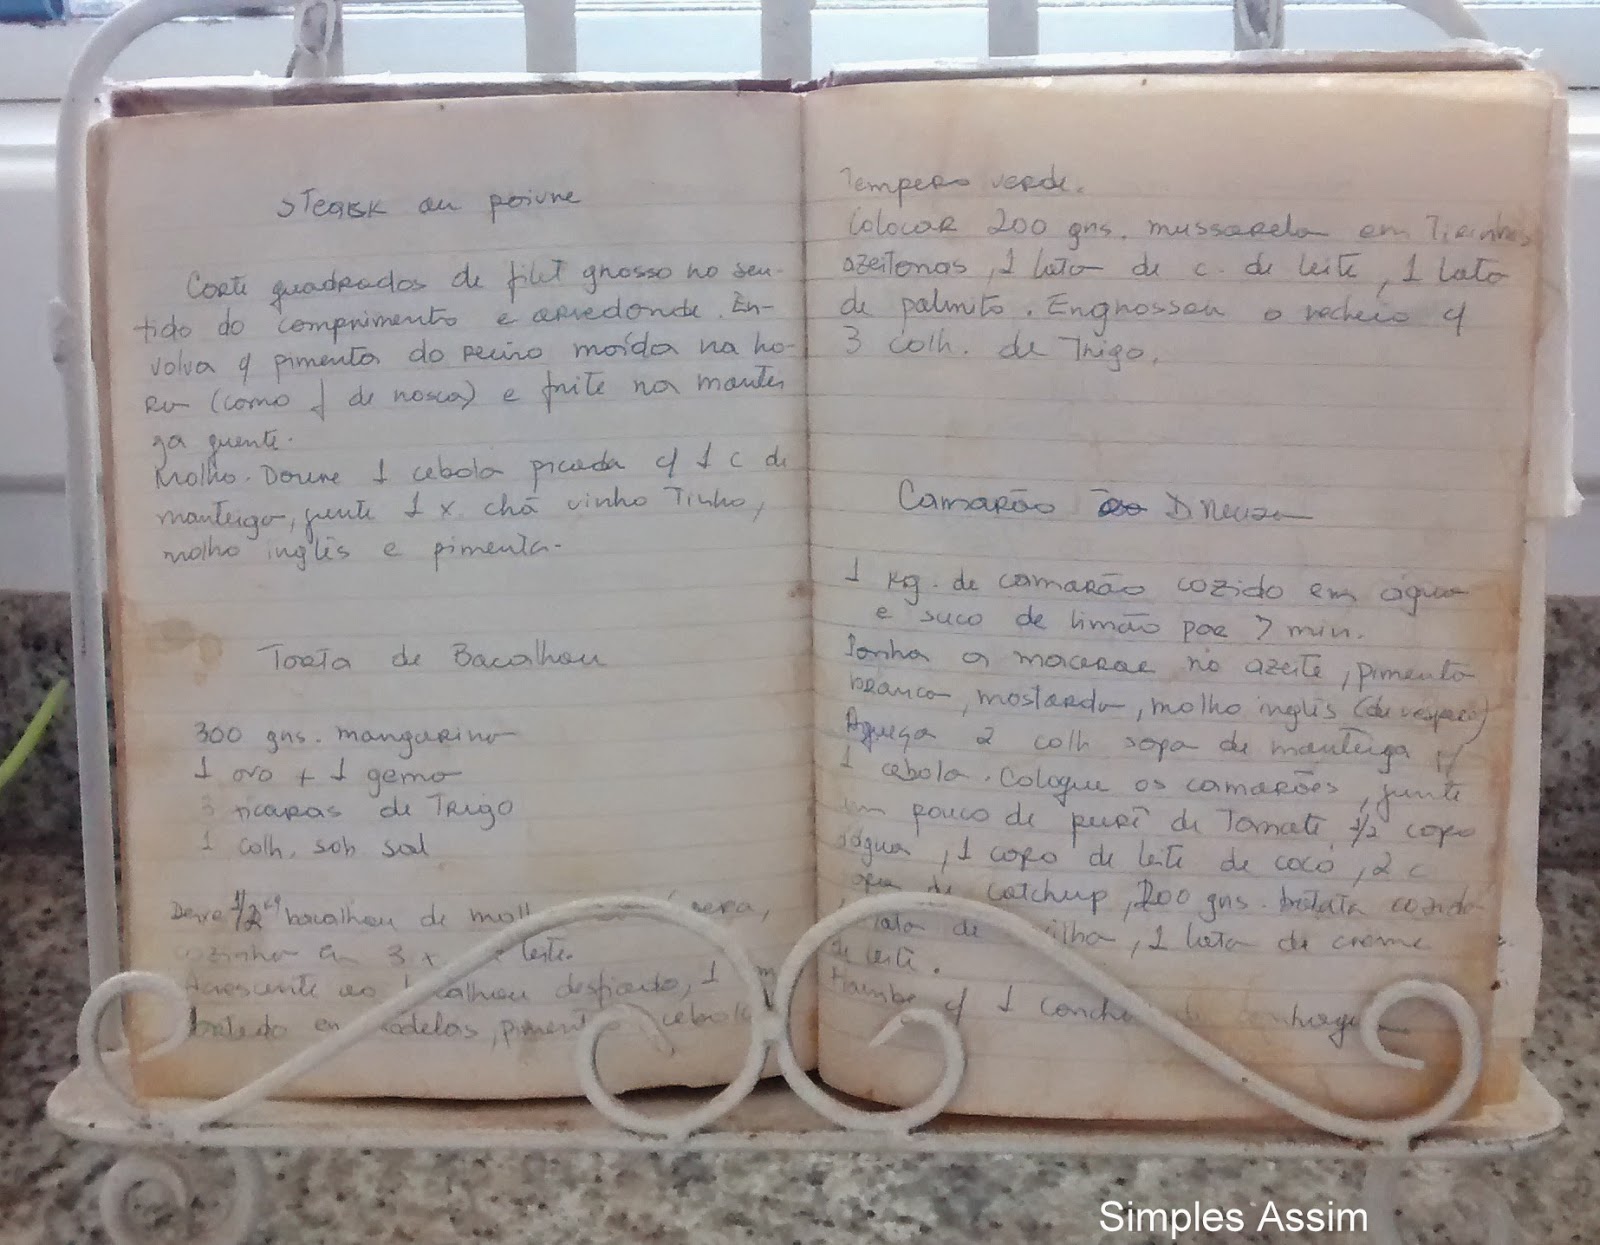 Steack au poivre
Corte quadrados de filet grosso no sen-
tido do comprimento e arredonde. En-
volva c/ pimenta do reino moída na ho-
ra (como f de nosca) e frite na mantei
ga quente.
Molho. Doure 1 cebola picada c/ 1 c de
manteiga, junte 1 x. chá vinho Tinho,
molho inglês e pimenta.
Torta de Bacalhau
300 grs. margarina
1 ovo + 1 gema
3 xicaras de Trigo
1 colh. sob sal
Deixe 1/2 kg bacalhau de
cozinhe em 3 x leite.
Acrescente ao desfiado, 1
batido em pimenta cebola
Tempero verde.
Colocar 200 grs. mussarela em Tirinhas
azeitonas, 1 lata de c. de leite, 1 lata
de palmito. Engrossar o recheio c/
3 colh. de Trigo.
Camarão D Neuza
1 kg. de camarão cozido em água
e suco de limão por 7 min.
Ponha a macerar no azeite, pimenta
branca, mostarda, molho inglês (de vespera)
Aqueça 2 colh sopa de manteiga c/
1 cebola. Coloque os camarões, junte
um pouco de purê de Tomate, 1/2 copo
dágua, 1 copo de leite de coco, 2 c
de catchup, 200 grs. batata cozida
lata de 1 lata de creme
de leite.
Flambe c/ 1 concha de
Simples Assim